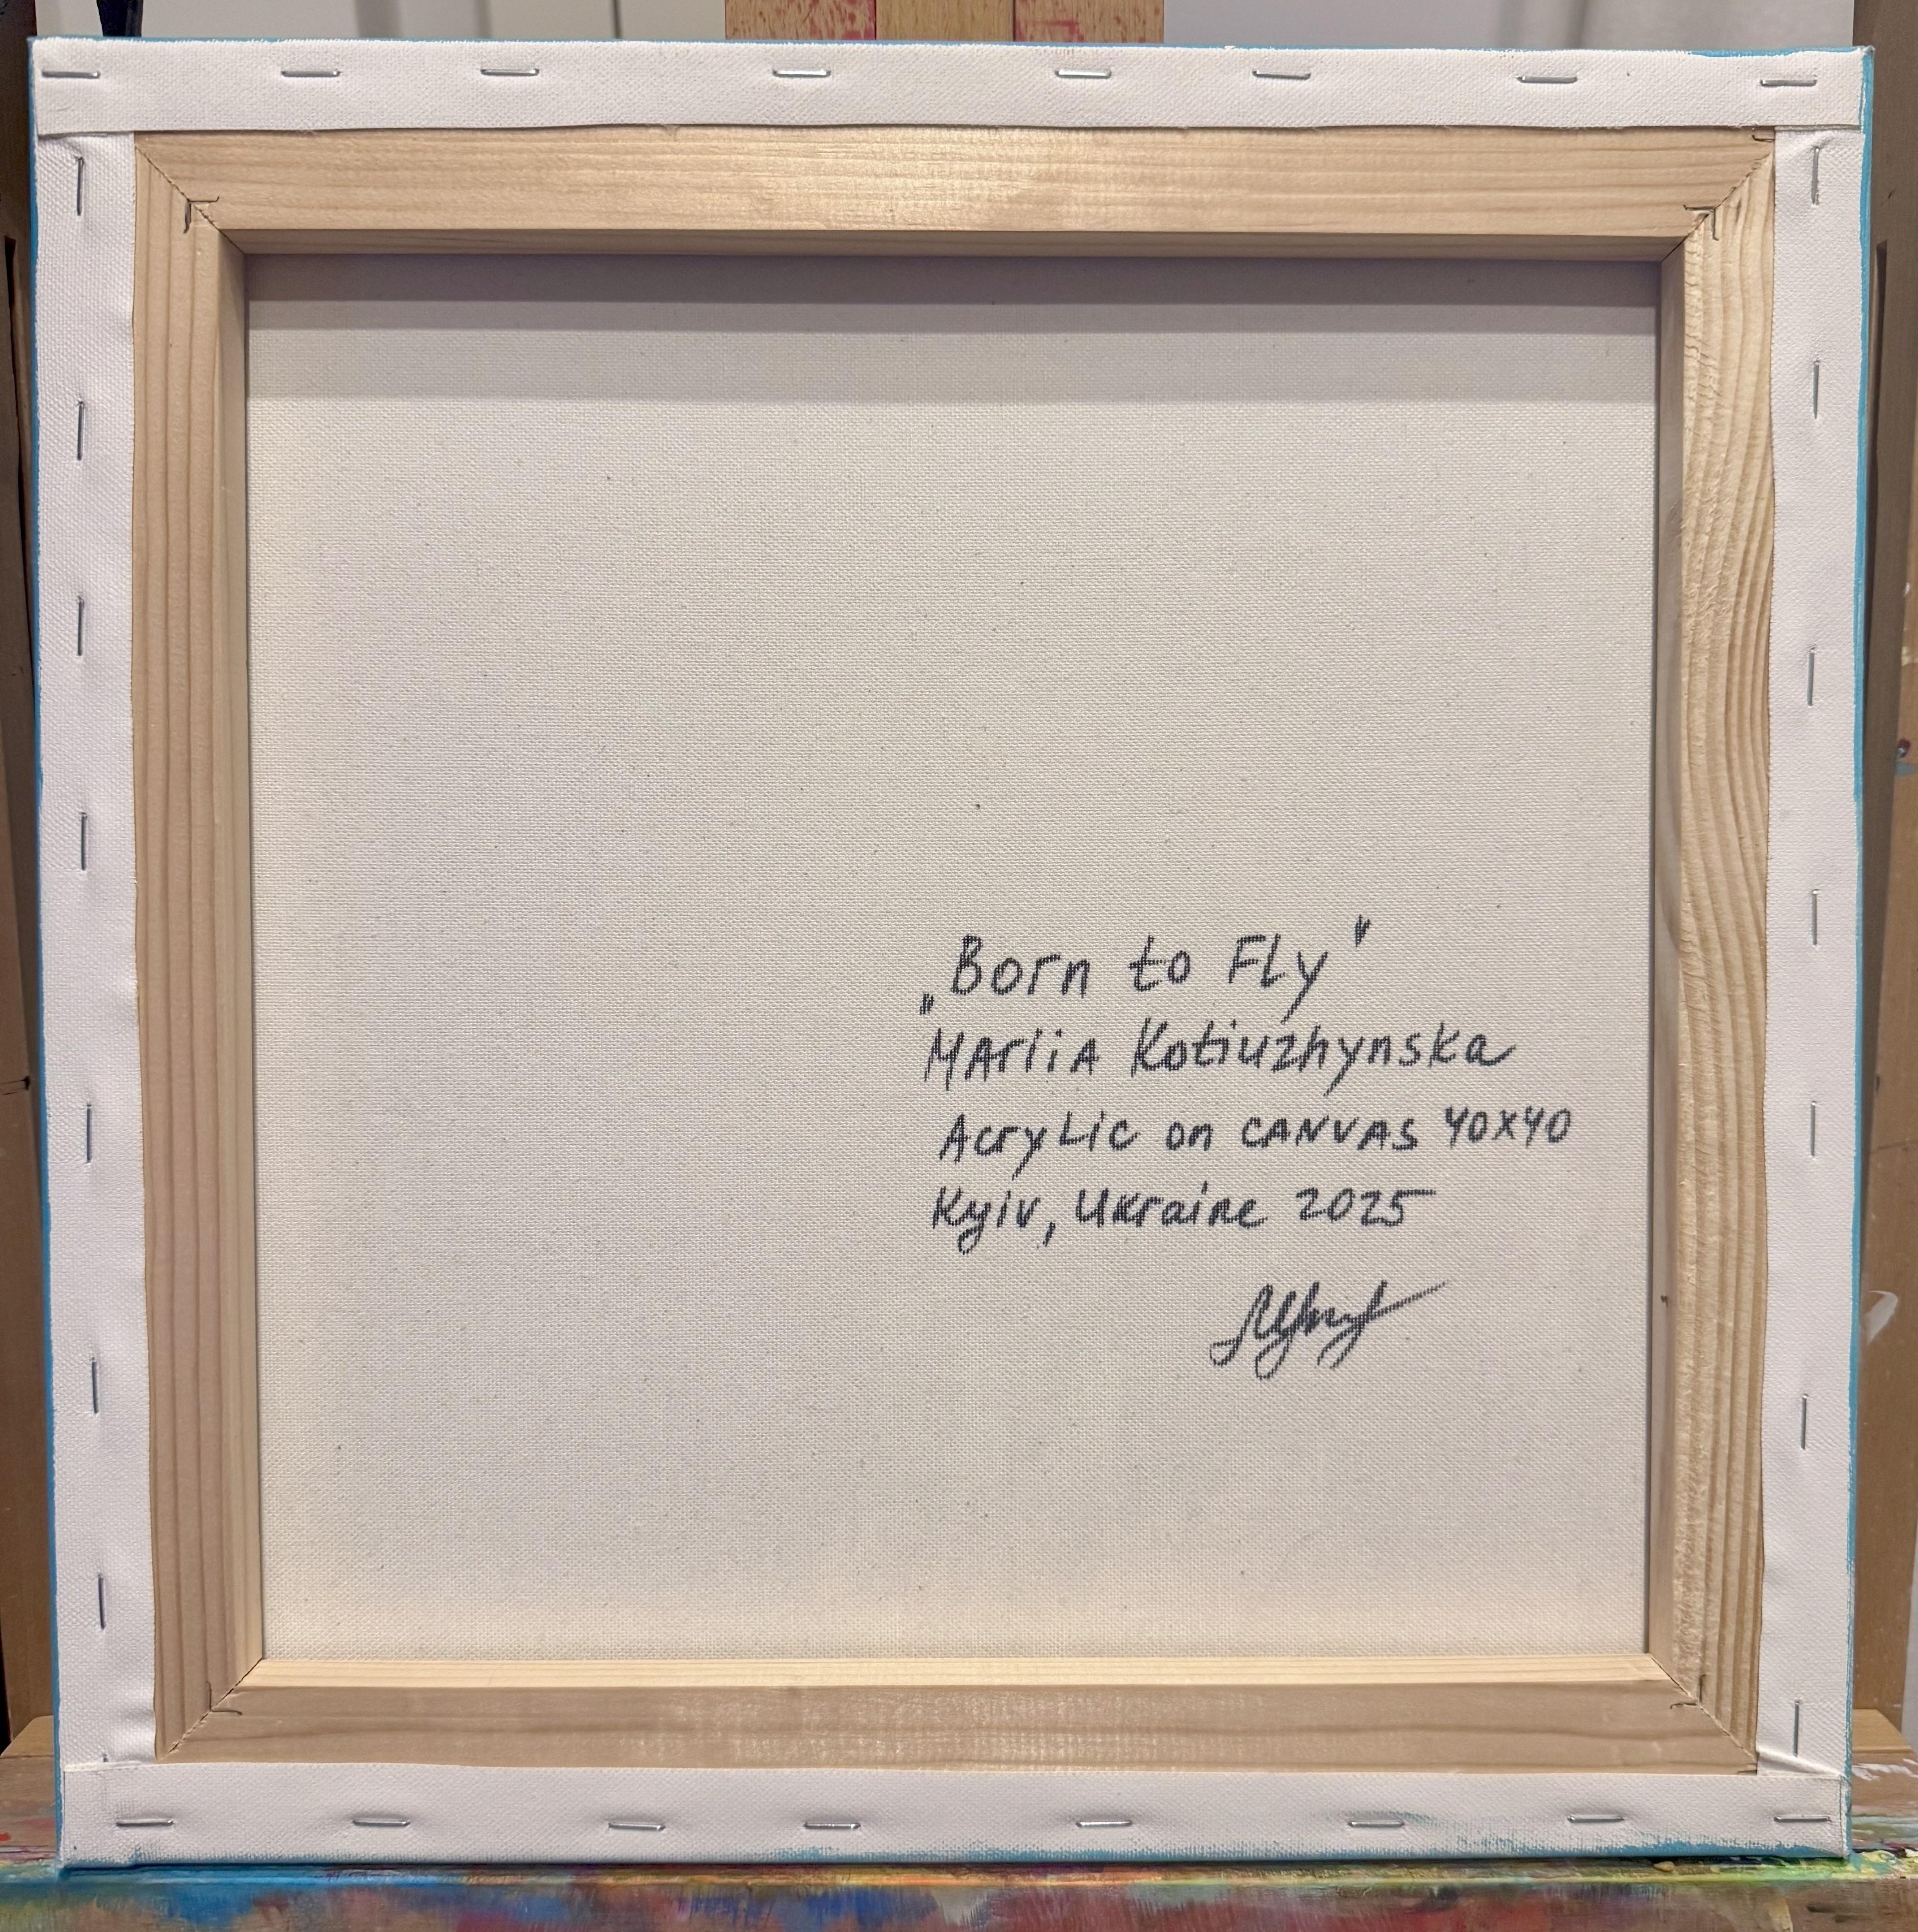 „Born to Fly"
Mariia Kotiuzhynska
Acrylic on canvas 40x40
Kyiv, Ukraine 2025